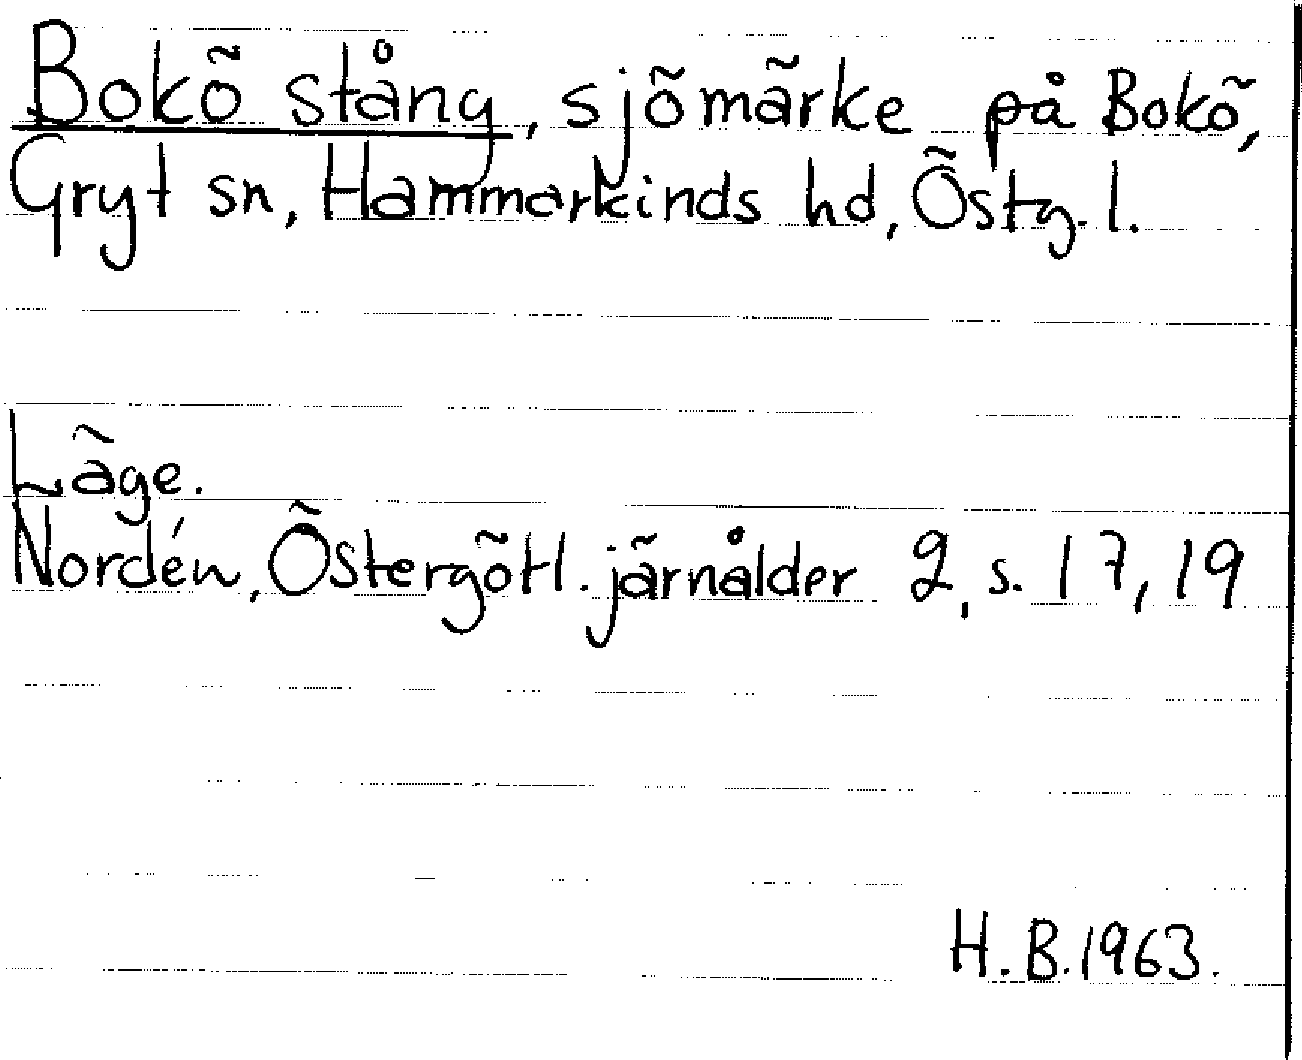 Bokö stång, sjömärke på Bokö,
Gryt sn, Hammarkinds hd, Östg. l.
Läge.
Nordén, Östergötl. järnålder 2, s. 17, 19
H. B. 1963.